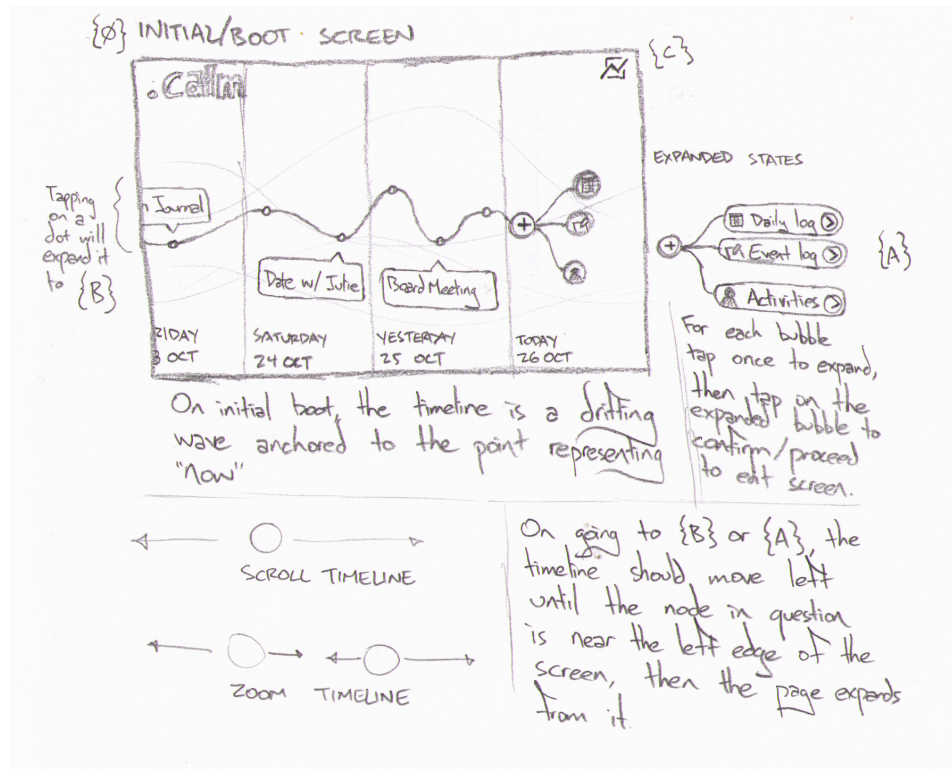 {Ø} INITIAL/BOOT SCREEN
{C}
.calm
EXPANDED STATES
Tapping
on a
dot will
expand it
to {B}
n Journal
Date w/ Julie
Board Meeting
Daily log
Event log
Activities
{A}
RIDAY
3 OCT
SATURDAY
24 OCT
YESTERDAY
25 OCT
TODAY
26 OCT
For each bubble
tap once to expand,
then tap on the
expanded bubble to
confirm/proceed
to edit screen.
On initial boot, the timeline is a drifting
wave anchored to the point representing
"now"
SCROLL TIMELINE
ZOOM TIMELINE
On going to {B} or {A}, the
timeline should move left
until the node in question
is near the left edge of the
screen, then the page expands
from it.